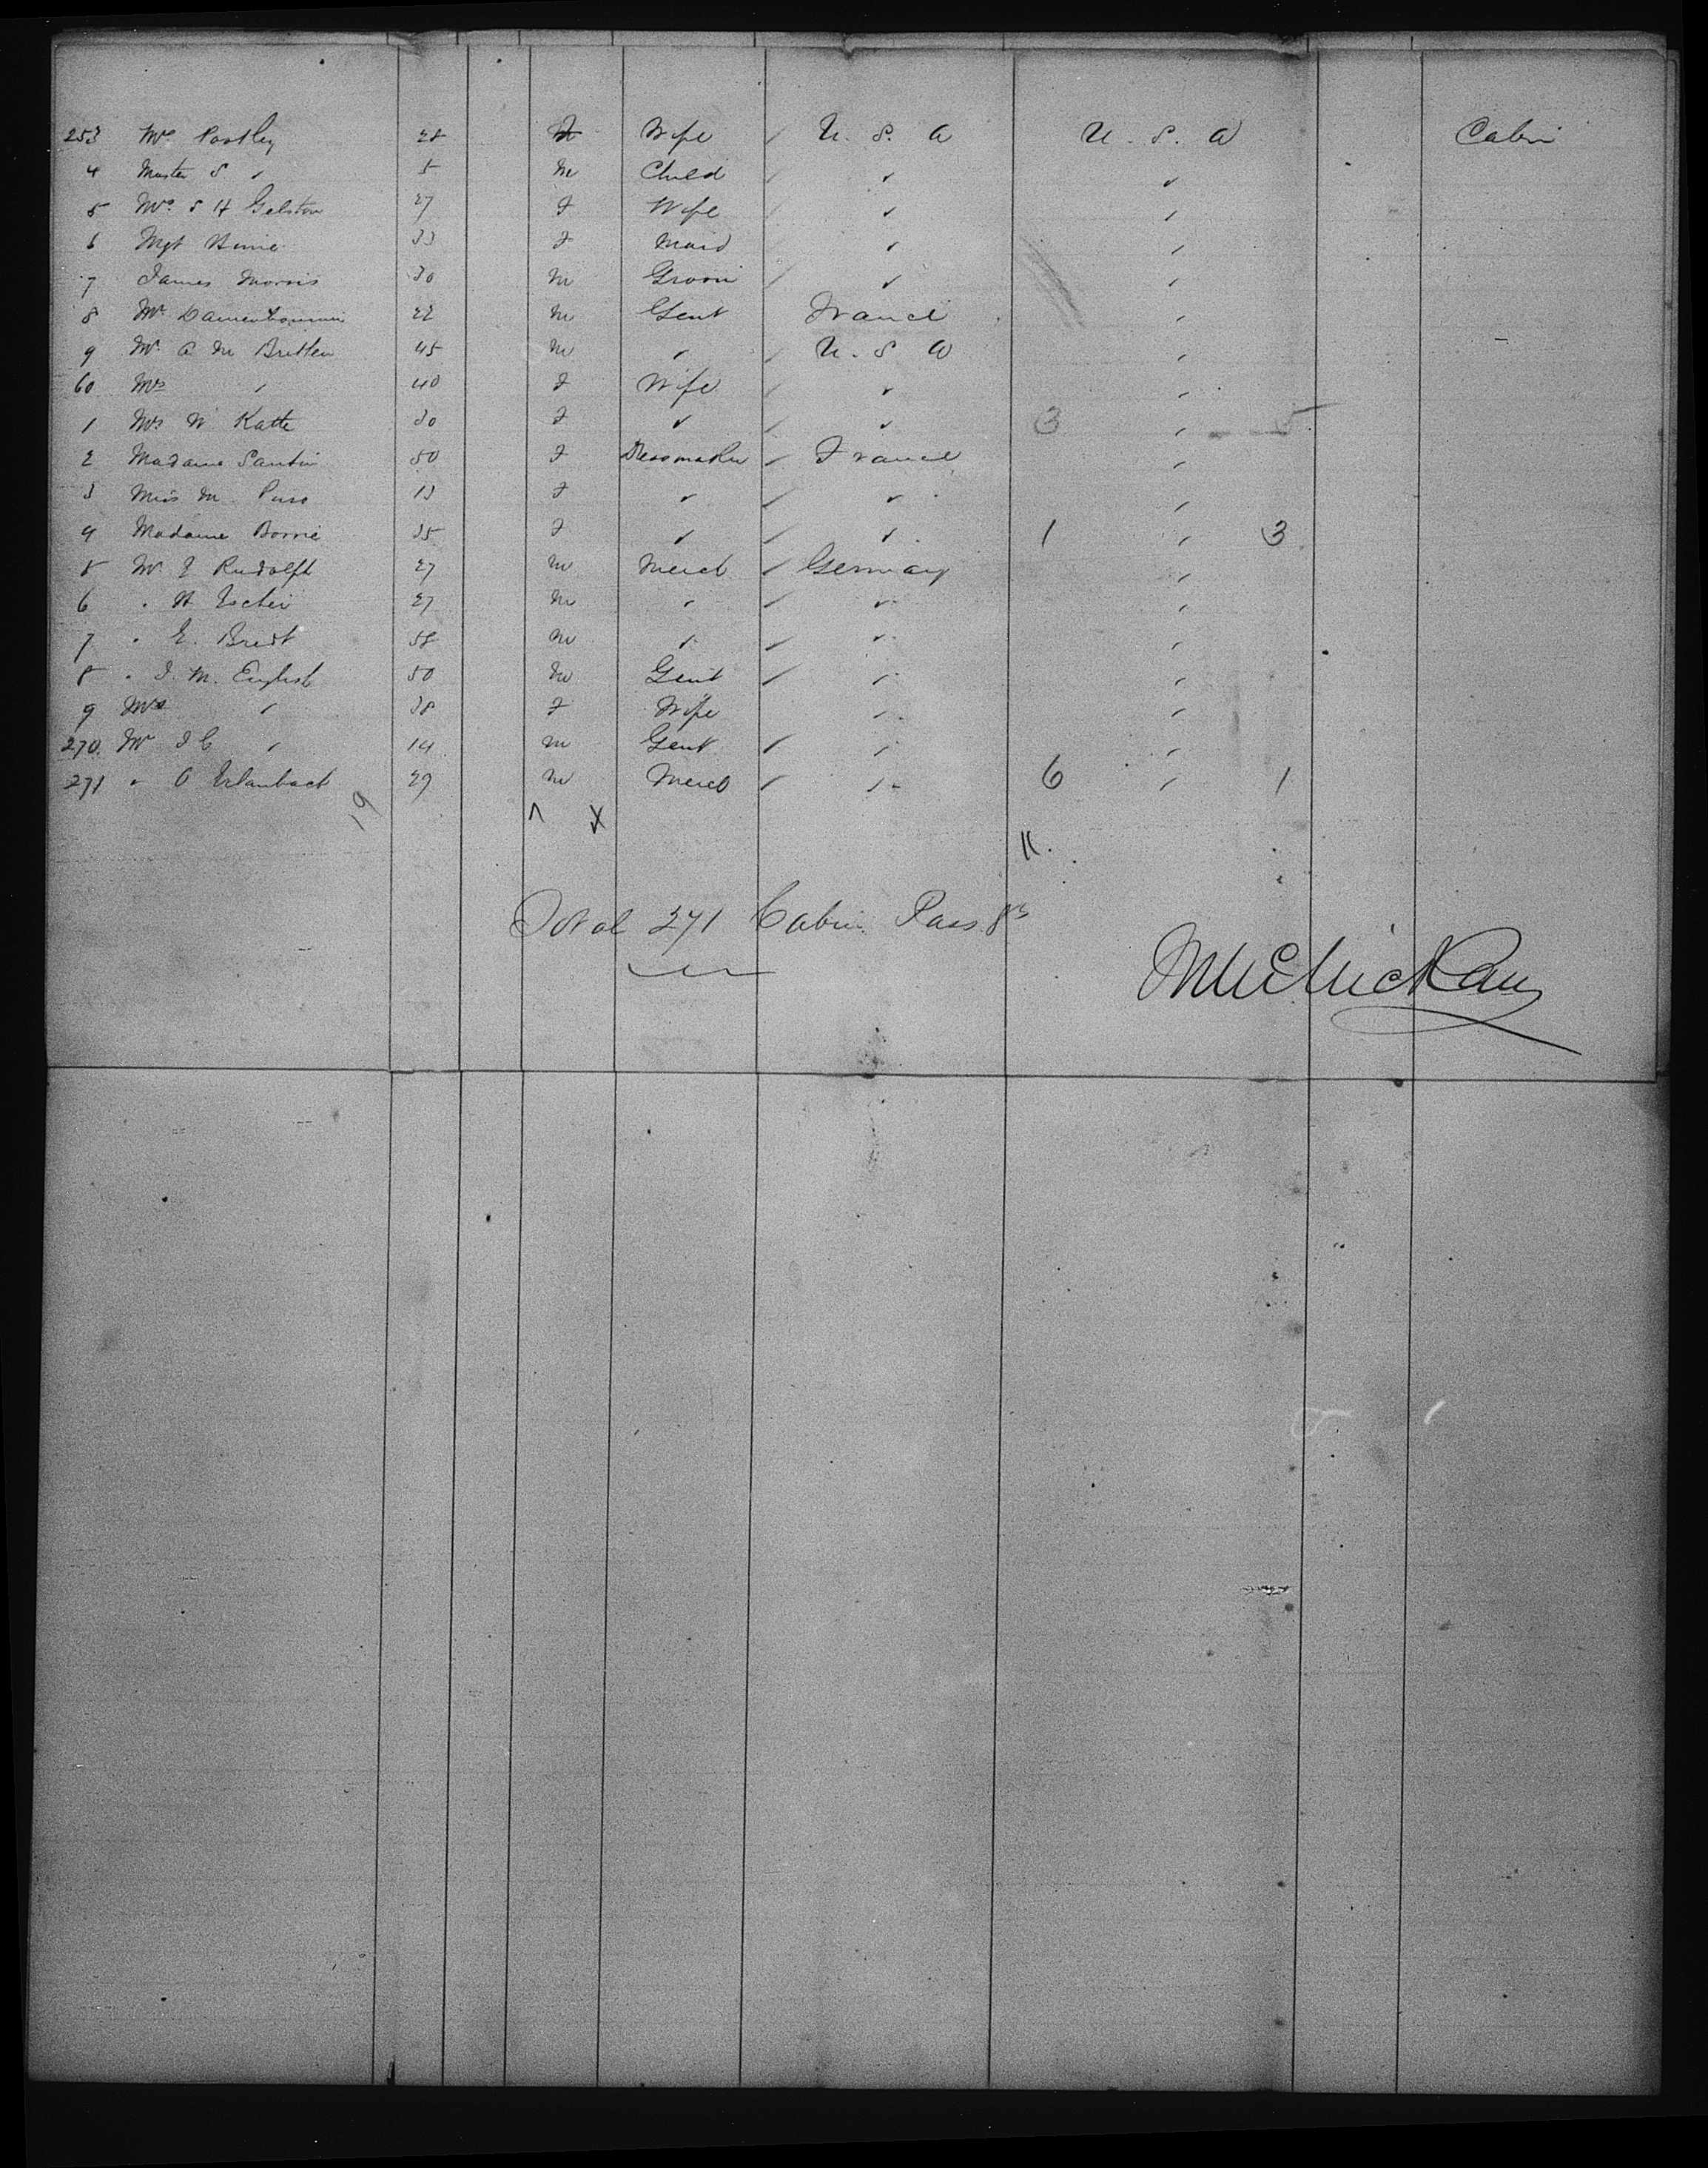 253 Mrs Postley 28 F Wife / U. S. A U. S. A Cabin
4 Master S " 5 M Child / " "
5 Mrs S H Gelston 27 F Wife / " "
6 Mgt 33 F Maid / " "
7 James Morris 30 M Groom / " "
8 Mr 22 M Gent France "
9 Mr A M Britten 45 M " / U. S A "
60 Mrs " 40 F Wife / " "
1 Mrs W Katte 30 F " / " 3 " 5
2 Madame 50 F Dressmaker / France "
3 Miss M 13 F " / " "
4 Madame 35 F " / " 1 " 3
5 Mr E Rudolph 27 M Merct / Germany "
6 " H 27 M " / " "
7 " E. Bredt 58 M " / " "
8 " J. M. English 50 M Gent / " "
9 Mrs " 38 F Wife " "
270. Mr J C " 14 M Gent / " "
271 " A 29 M Merct / " 6 " 1
19 X 11.
Total 271 Cabin Passgrs